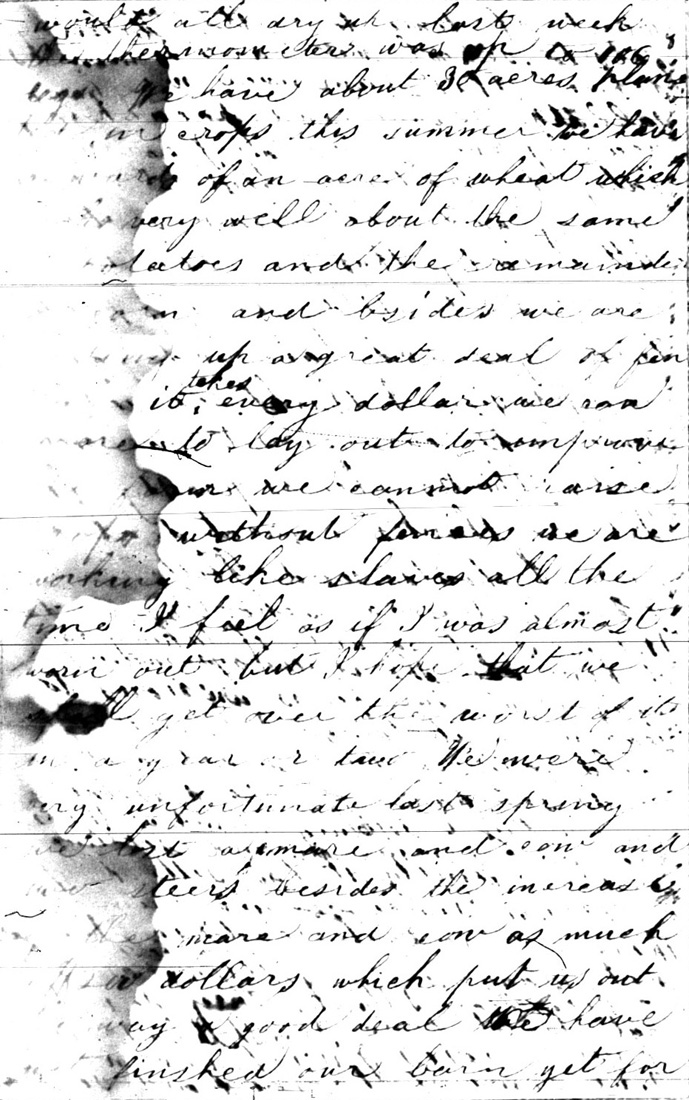 would all dry up last week
thermometer was up to 106
We have about 30 acres plan
in crops this summer we have
of an acre of wheat which
very well about the same
tatoes and the remainde
and besides we are
up a great deal of fen
it, takes every dollar we can
to lay out to improve
we cannot raise
without fences we are
working like slaves all the
time I feel as if I was almost
worn out but I hope that we
shall get over the worst of it
in a year or two We were
very unfortunate last spring
we lost a mare and cow and
steers besides the increase
the mare and cow as much
dollars which put us out
way a good deal We have
finshed our barn yet for